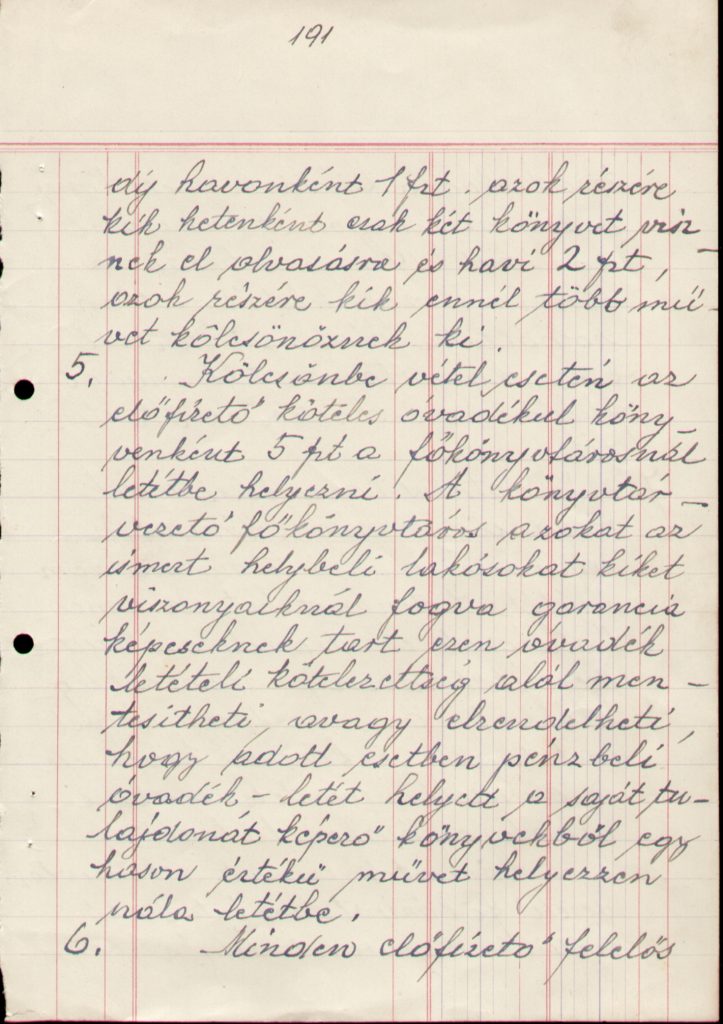 191
díj havonként 1 frt. azok részére
kik hetenként csak két könyvet visz-
nek el olvasásra és havi 2 frt,
azok részére kik ennél több mű-
vet kölcsönöznek ki.
5. Kölcsönbe vétel esetén az
előfizető köteles óvadékul köny-
venként 5 frt a főkönyvtárosnál
letétbe helyezni. A könyvtár-
vezető főkönyvtáros azokat az
ismert helybeli lakósokat kiket
viszonyaiknál fogva garancia
képeseknek tart ezen óvadék
letételi kötelezettség alól men-
tesítheti, avagy elrendelheti,
hogy adott esetben pénzbeli
óvadék-letét helyett a saját tu-
lajdonát képező könyvekből egy
hason értékű művet helyezzen
nála letétbe.
6. Minden előfizető felelős